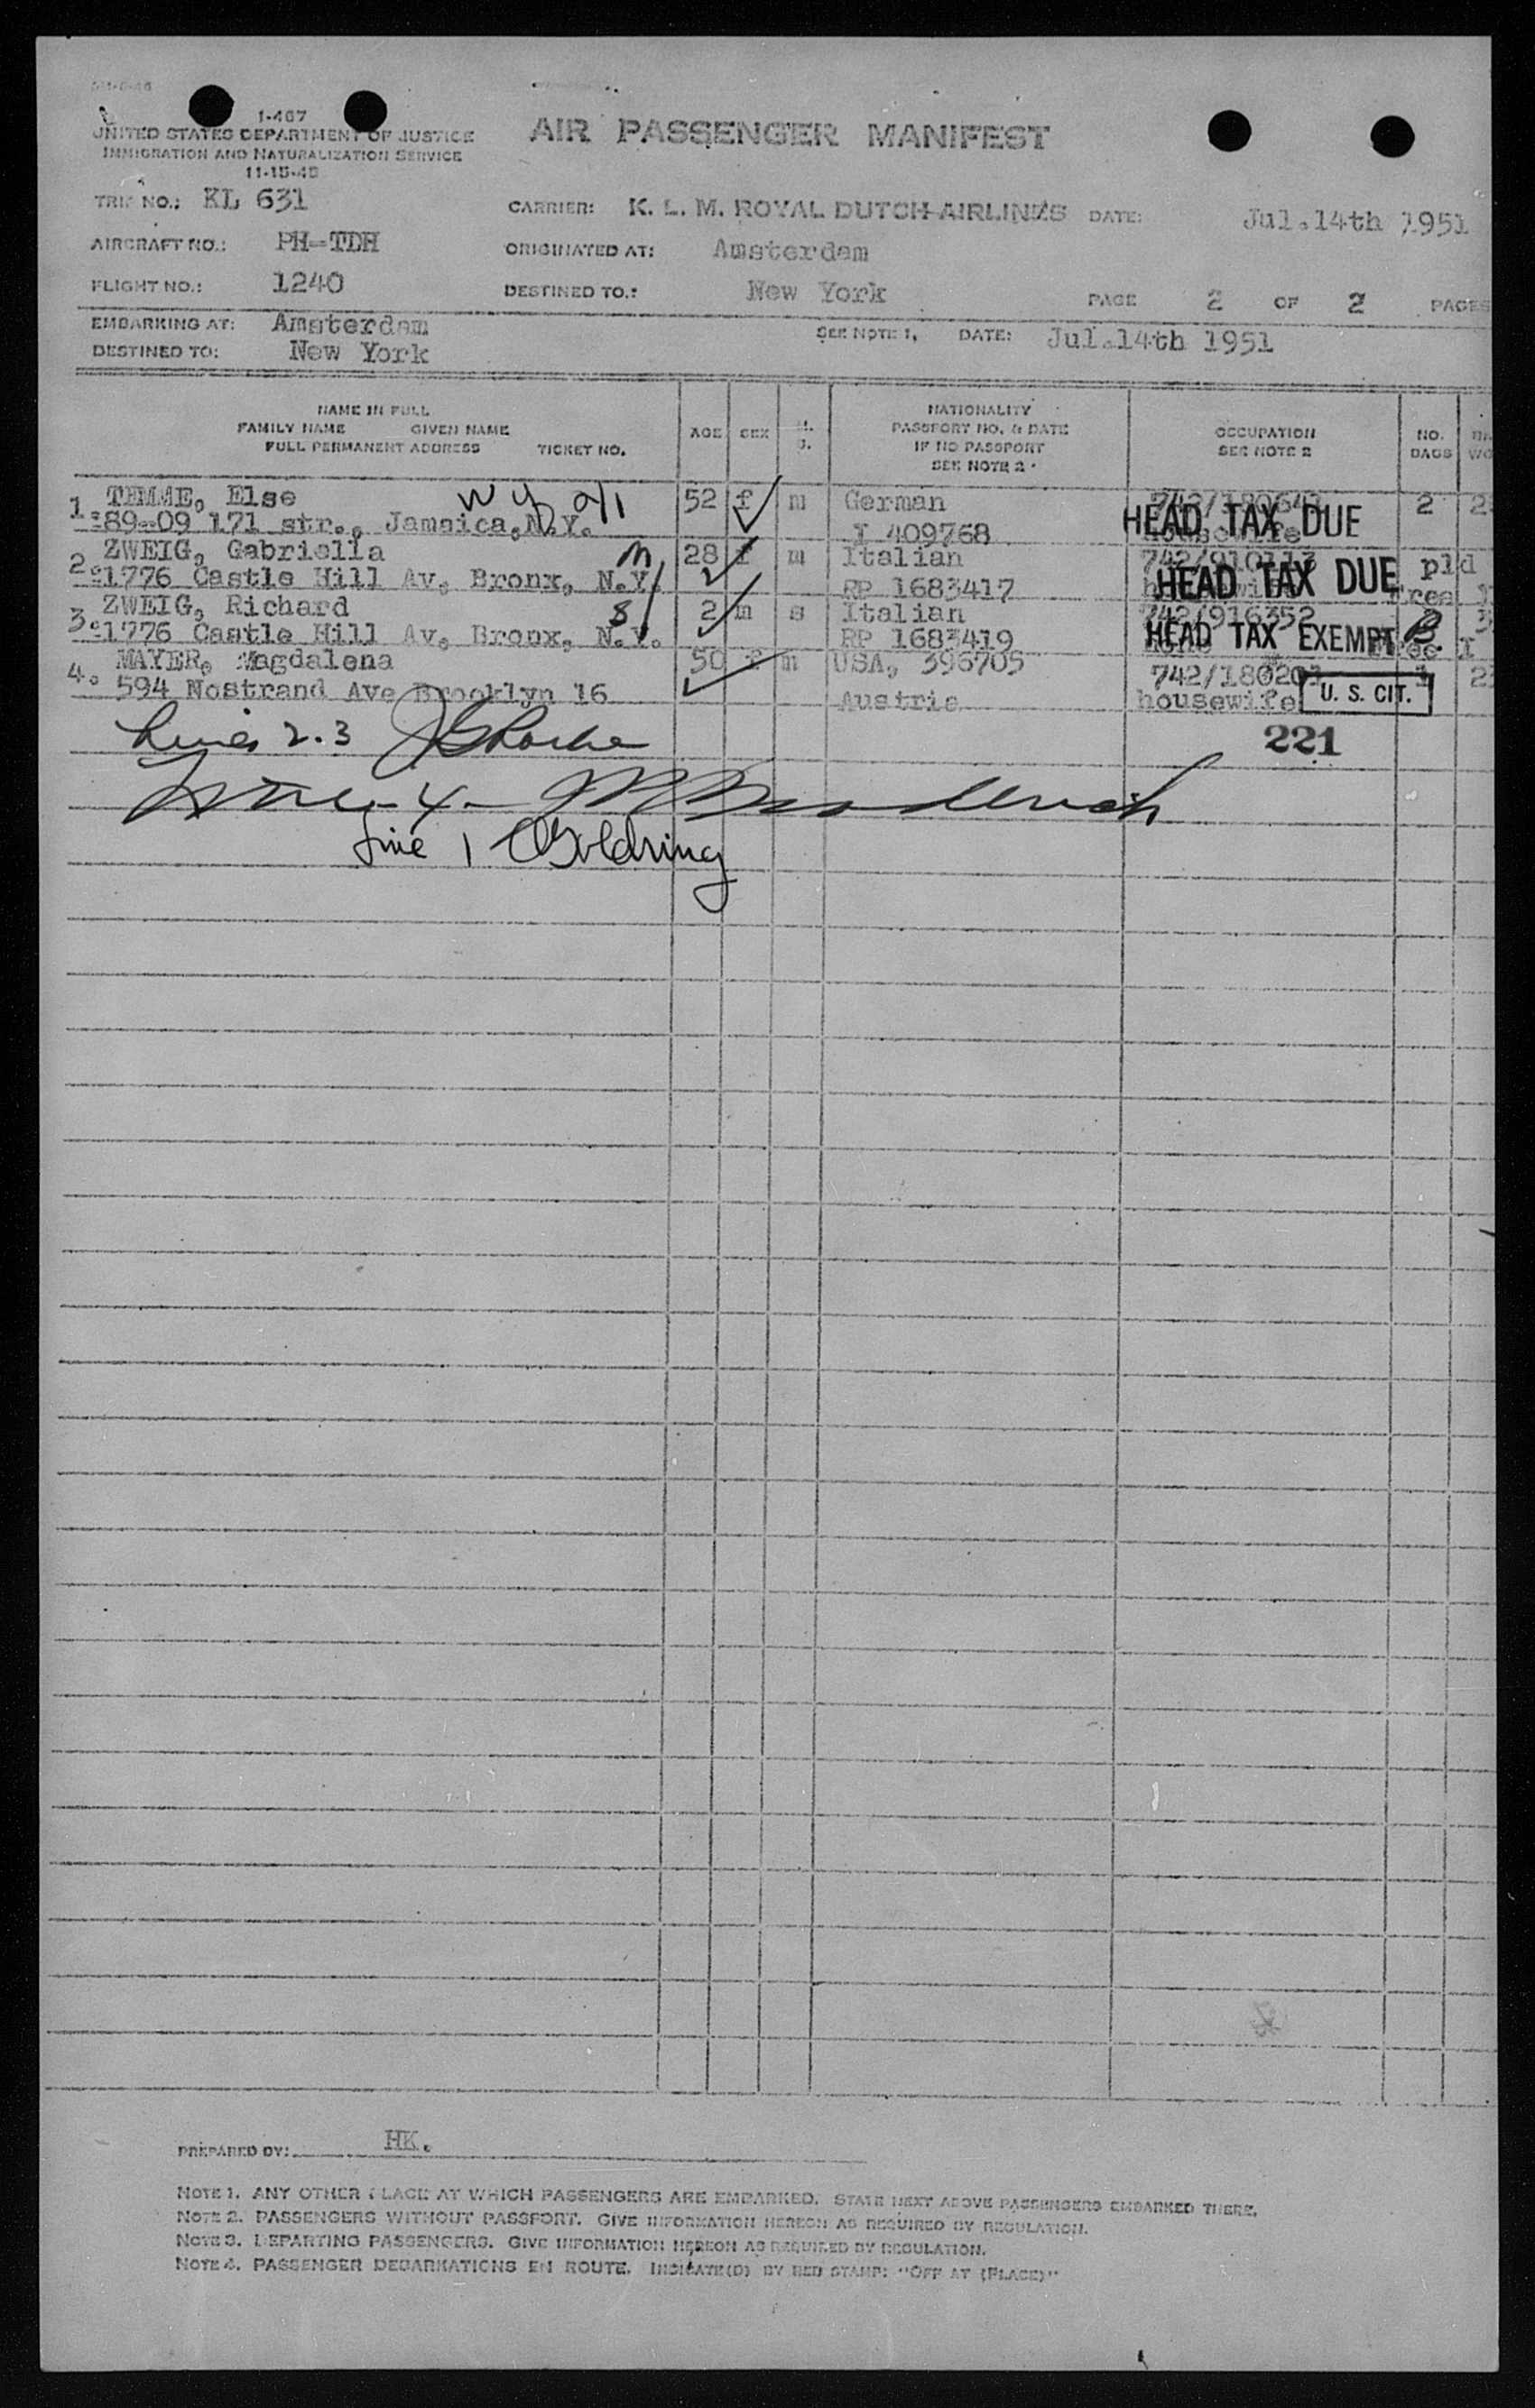 1-467
UNITED STATES DEPARTMENT OF JUSTICE
IMMIGRATION AND NATURALIZATION SERVICE
11-15-45
AIR PASSENGER MANIFEST
TRIP NO.: KL 631
CARRIER: K. L. M. ROYAL DUTCH AIRLINES DATE: Jul.14th 1951
AIRCRAFT NO.: PH-TDH
ORIGINATED AT: Amsterdam
FLIGHT NO.: 1240
DESTINED TO.: New York
PAGE 2 OF 2 PAGES
EMBARKING AT: Amsterdam
SEE NOTE 1. DATE: Jul.14th 1951
DESTINED TO: New York
NAME IN FULL
FAMILY NAME GIVEN NAME
FULL PERMANENT ADDRESS TICKET NO.
AGE SEX
NATIONALITY
PASSPORT NO. & DATE
IF NO PASSPORT
SEE NOTE 2
OCCUPATION
SEE NOTE 2
NO.
BAGS
1. TEMME, Else 52 f m German 2
89-09 171 str., Jamaica,N.Y. I 409768 HEAD TAX DUE
2. ZWEIG, Gabriella 28 f m Italian pld
1776 Castle Hill Av, Bronx, N.Y. RP 1683417 HEAD TAX DUE
3. ZWEIG, Richard 2 m s Italian 742/916352
1776 Castle Hill Av, Bronx, N.Y. RP 1683419 HEAD TAX EXEMPT
4. MAYER, Magdalena 50 f m USA, 396705
594 Nostrand Ave Brooklyn 16 Austria housewife U. S. CIT.
Lines 2.3
221
Line 4
Line 1 Goldring
PREPARED BY: HK.
NOTE 1. ANY OTHER PLACE AT WHICH PASSENGERS ARE EMBARKED. STATE NEXT ABOVE PASSENGERS EMBARKED THERE.
NOTE 2. PASSENGERS WITHOUT PASSPORT. GIVE INFORMATION HEREON AS REQUIRED BY REGULATION.
NOTE 3. DEPARTING PASSENGERS. GIVE INFORMATION HEREON AS REQUIRED BY REGULATION.
NOTE 4. PASSENGER DEBARKATIONS EN ROUTE. INDICATE(D) BY RED STAMP: "OFF AT (PLACE)"